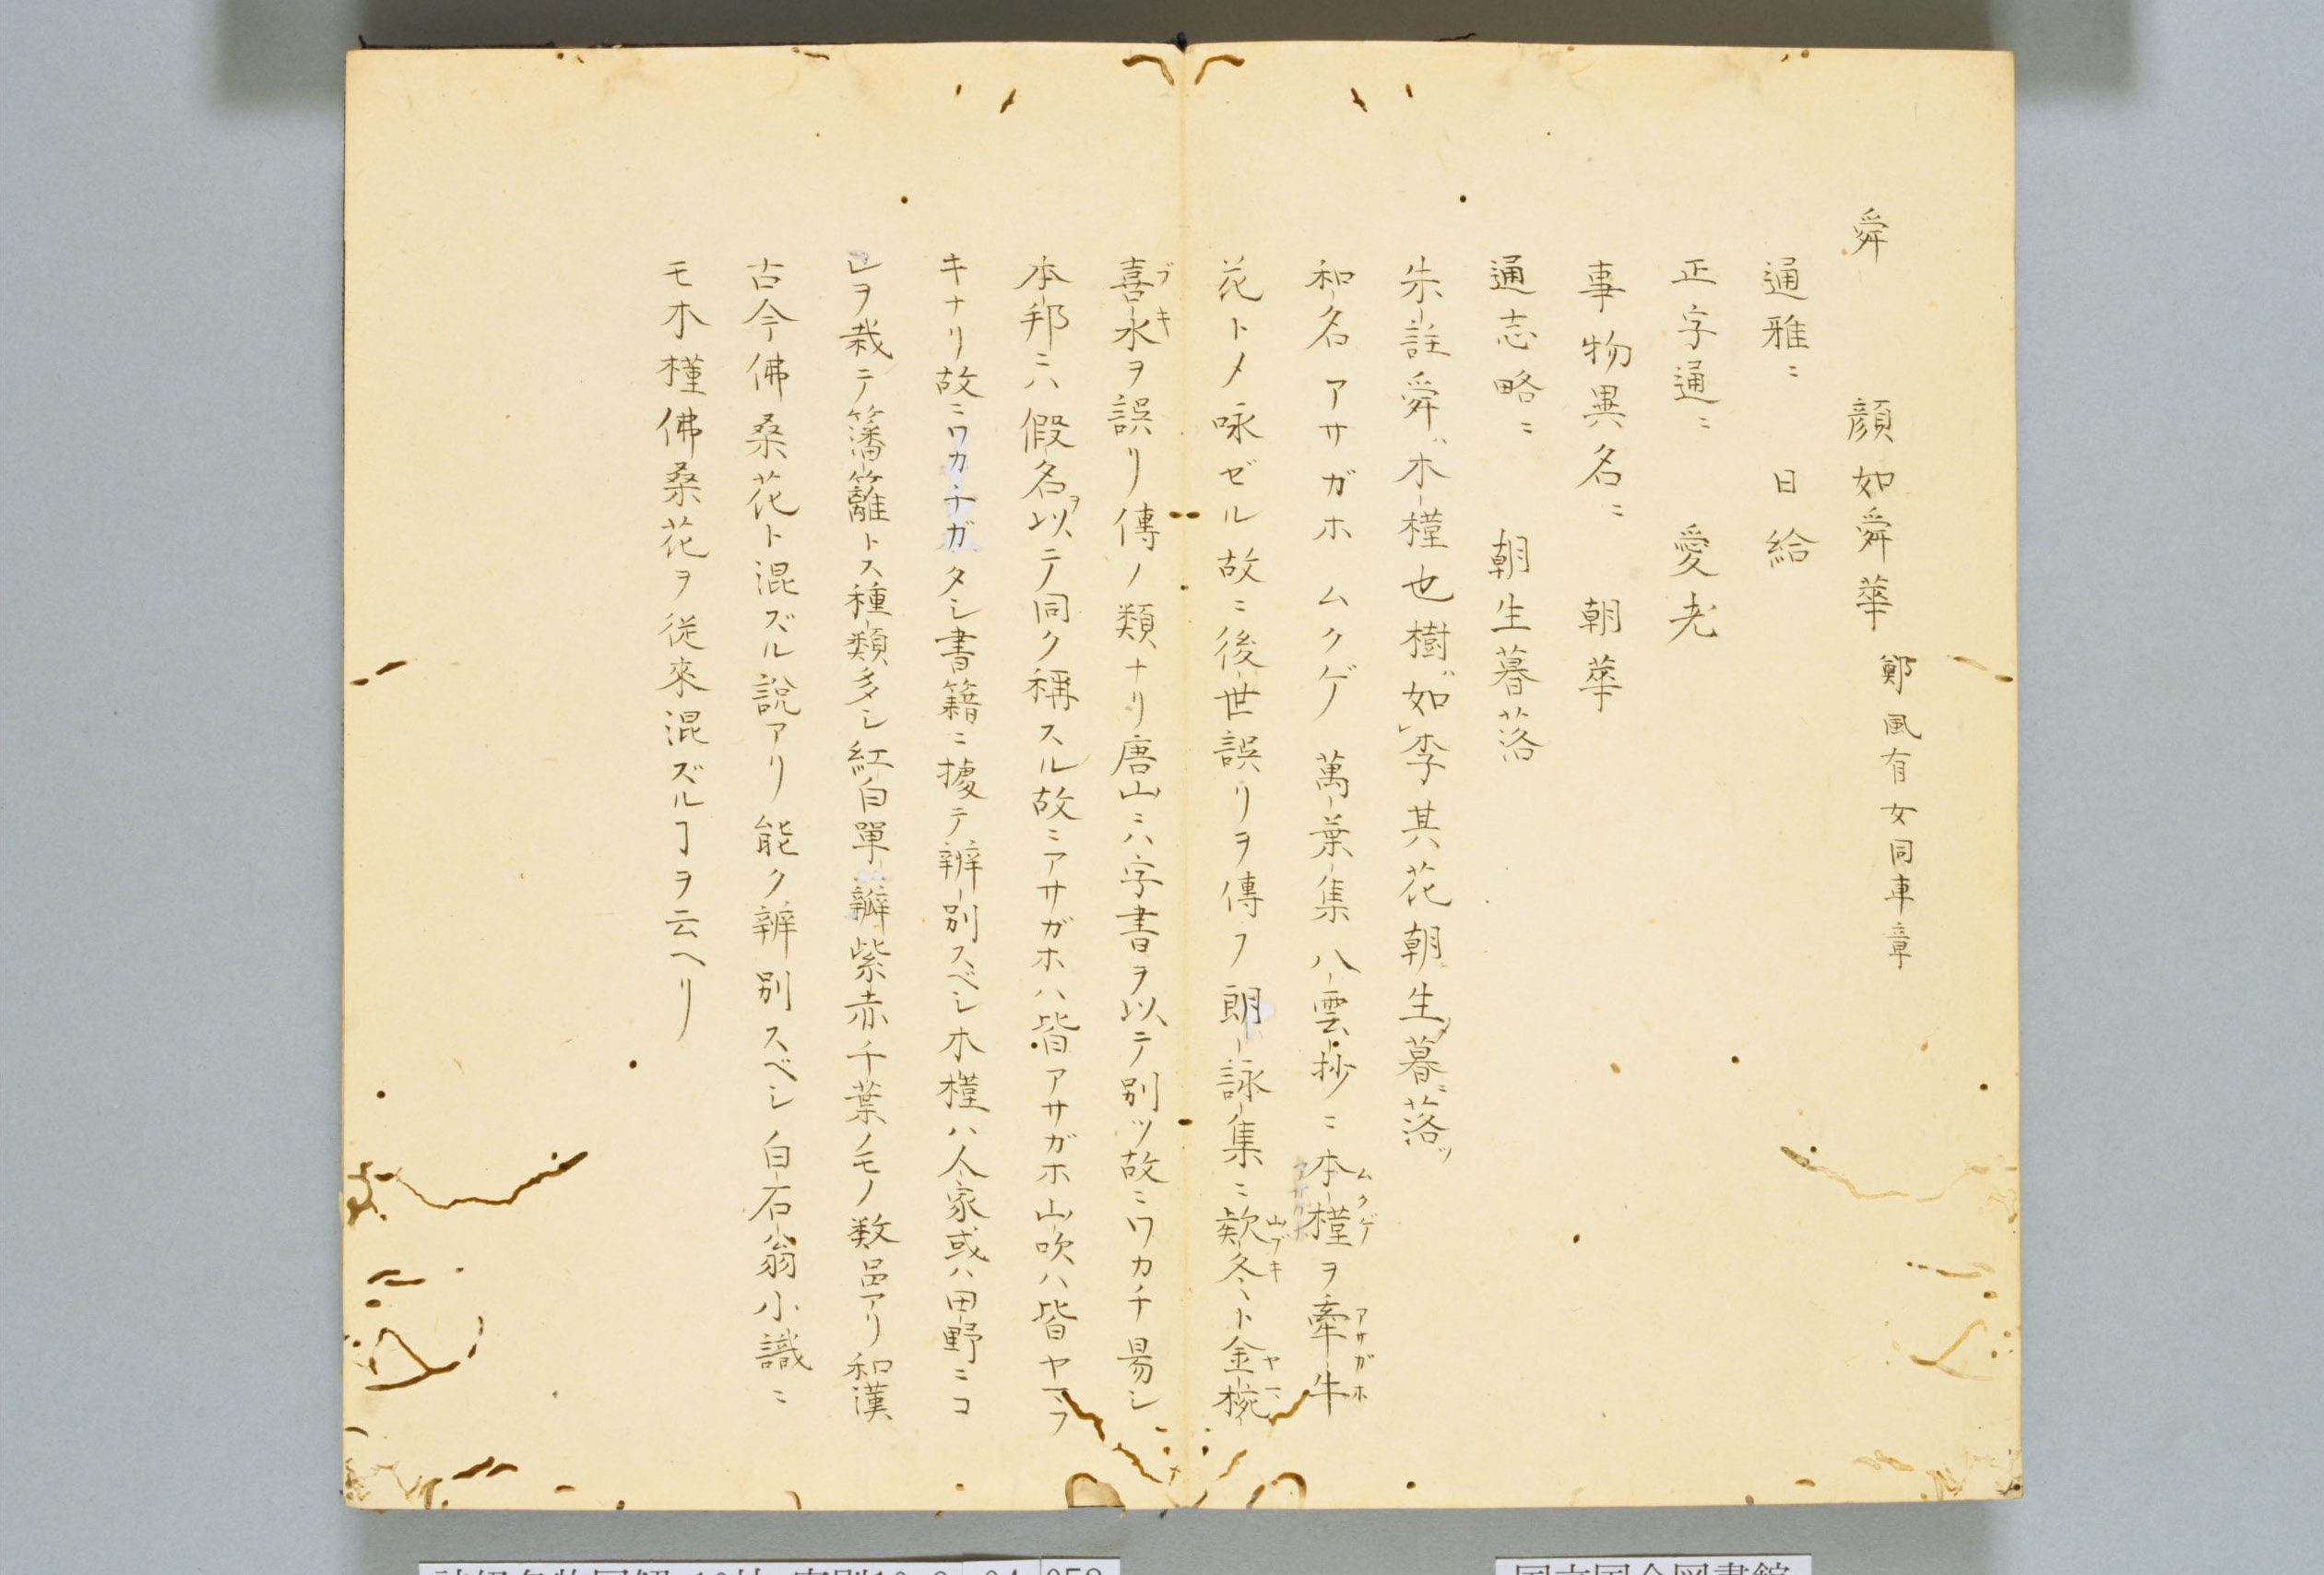 舜　顔如舜華　鄭風有女同車章
通雅ニ　日給
正字通ニ　愛老
事物異名ニ　朝華
通志略ニ　朝生暮落
朱註舜ハ木槿也樹ハ如レ李其花朝生シ暮ニ落ツ
和名アサガホムクゲ　萬葉集八雲抄ニ木槿ヲ牽牛
ムクゲ　アサガホ
花トメ咏ゼル故ニ後世誤リヲ傳フ朗詠集ニ欵冬ト金椀
山ブキ　ヤマ
喜水ヲ誤リ傳ノ類ナリ唐山ニハ字書ヲ以テ別ツ故ニワカチ易シ
ブキ
本邦ニハ假名ヲ以テ同ク稱スル故ニアサガホハ皆アサガホ山吹ハ皆ヤマブ
キナリ故ニワカチガタシ書籍ニ據テ辨別スベシ木槿ハ人家或ハ田野ニコ
レヲ栽テ籓籬トス種類多シ紅白單瓣紫赤千葉ノモノ数品アリ和漢
古今佛桑花ト混ズル說アリ能ク辨別スベシ白石翁小識ニ
モ木槿佛桑花ヲ従來混ズルヿヲ云ヘリ
国立国会図書館